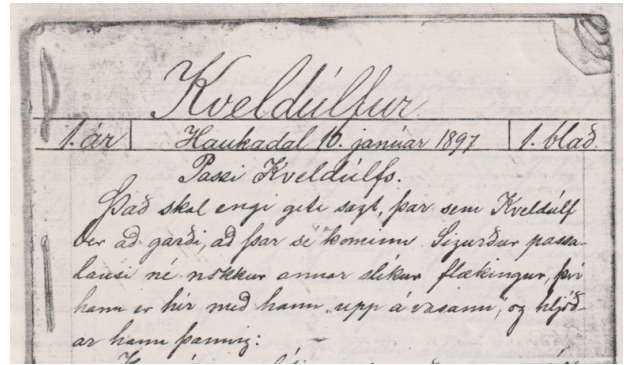 Kveldúlfur.
1. ár Haukadal 16. janúar 1897 1. blað.
Passi Kveldúlfs.
Það skal engi geta sagt, þar sem Kveldúlf
ber að garði, að þar sé kominn Sigurður passa-
lausi né nokkur annar slíkur flækingur, því
hann er hér með hann „upp á vasann", og hljóð-
ar hann þannig: